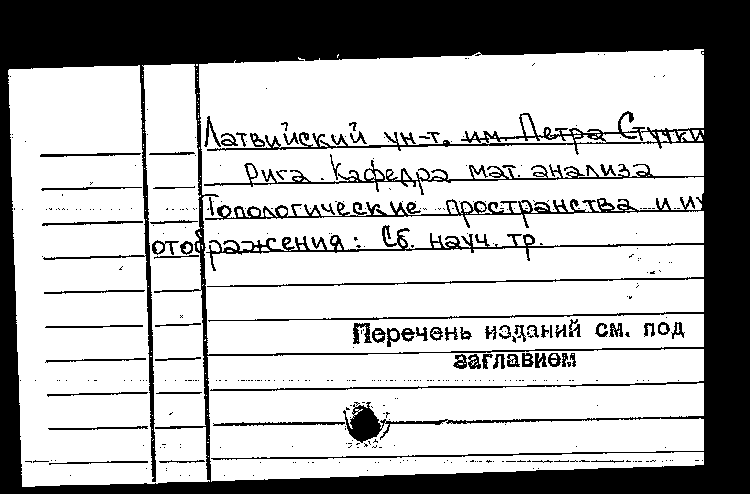 Латвийский ун-т. им. Петра Стучки
Рига. Кафедра мат. анализа
Топологические пространства и их
отображения: Сб. науч. тр.
Перечень изданий см. под
заглавием